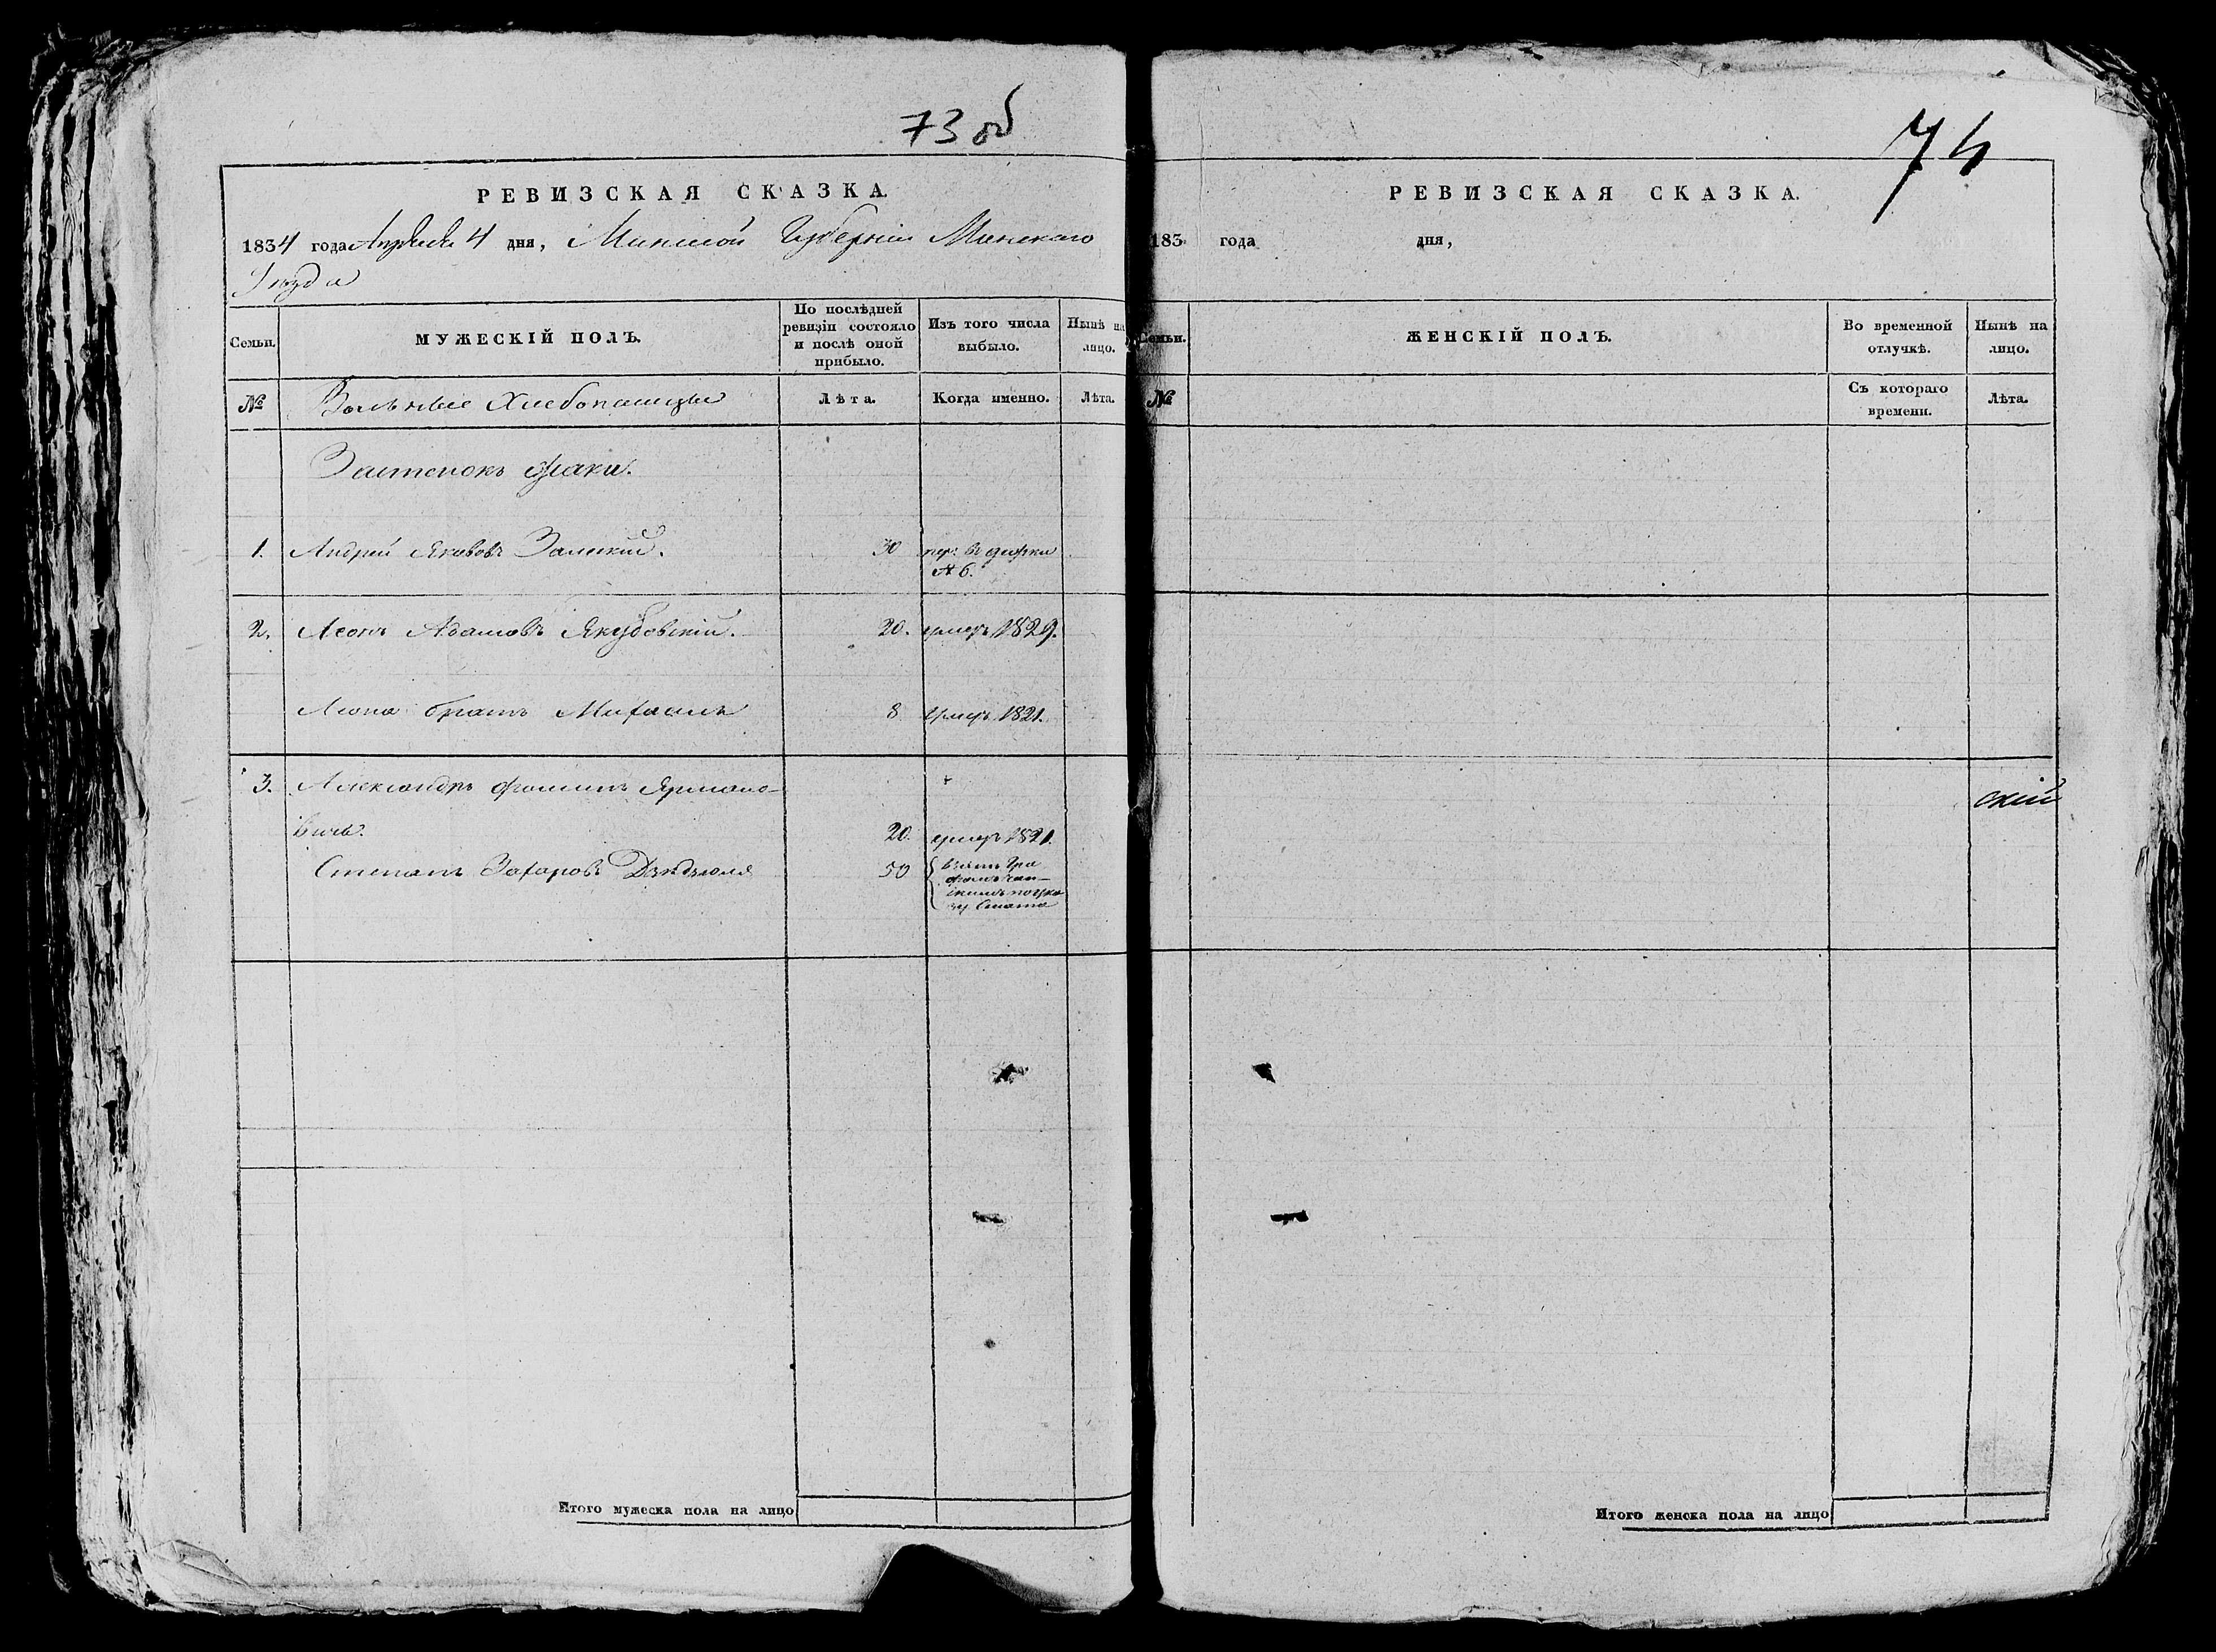 73 об
РЕВИЗСКАЯ СКАЗКА.
1834 года Апреля 4 дня, Минской Губерніи Минскаго
Уезда
Семьи.
МУЖЕСКІЙ ПОЛЪ.
По послѣдней ревизіи состояло и послѣ оной прибыло.
Изъ того числа выбыло.
Нынѣ на лицо.
№
Вольные Хлебопашцы
Лѣта.
Когда именно.
Лѣта.
Застенокъ
1. Андрей Якововъ Залескій. 30 пер: в
№ 6.
2. Леонъ Адамовъ Якубовскій. 20. умеръ 1829.
Леона братъ Михаилъ 8 умеръ 1821.
3. Александръ Фоминъ Ярмоло-
вичь. 20. умеръ 1821.
Степанъ Захаровъ 50 взятъ Гра
фомъ Чап-
скимъ по ука
зу Сената
Итого мужеска пола на лицо
74
РЕВИЗСКАЯ СКАЗКА.
183 года дня,
Семьи.
ЖЕНСКІЙ ПОЛЪ.
Во временной отлучкѣ.
Нынѣ на лицо.
№
Съ котораго времени.
Лѣта.
скій
Итого женска пола на лицо